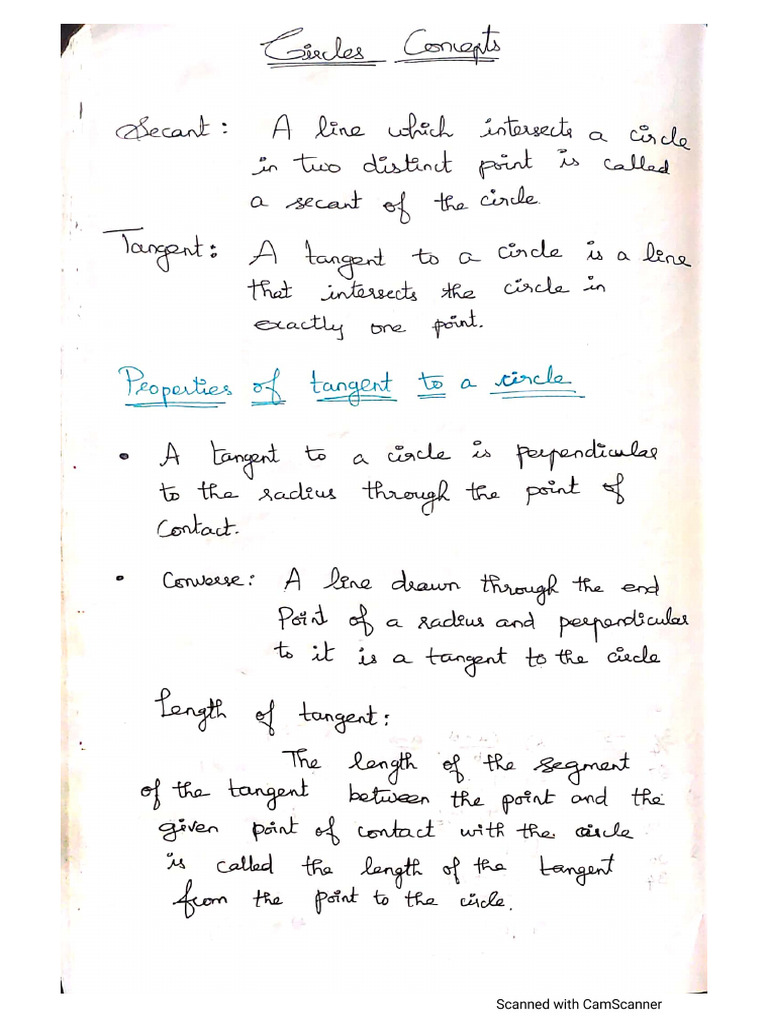 Circles Concepts
Secant: A line which intersects a circle
in two distinct point is called
a secant of the circle.
Tangent: A tangent to a circle is a line
that intersects the circle in
exactly one point.
Properties of tangent to a circle
• A tangent to a circle is perpendicular
to the radius through the point of
Contact.
• Converse: A line drawn through the end
Point of a radius and perpendicular
to it is a tangent to the circle
Length of tangent:
The length of the segment
of the tangent between the point and the
given point of contact with the circle
is called the length of the tangent
from the point to the circle.
Scanned with CamScanner